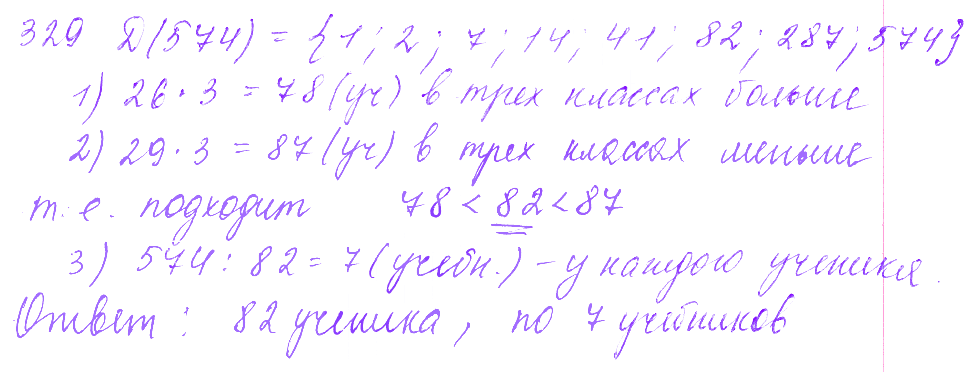 329 Д(574) = {1; 2; 7; 14; 41; 82; 287; 574}
1) 26 · 3 = 78 (уч) в трех классах больше
2) 29 · 3 = 87 (уч) в трех классах меньше
т. е. подходит 78 < 82 < 87
3) 574 : 82 = 7 (учебн.) - у каждого ученика.
Ответ: 82 ученика, по 7 учебников